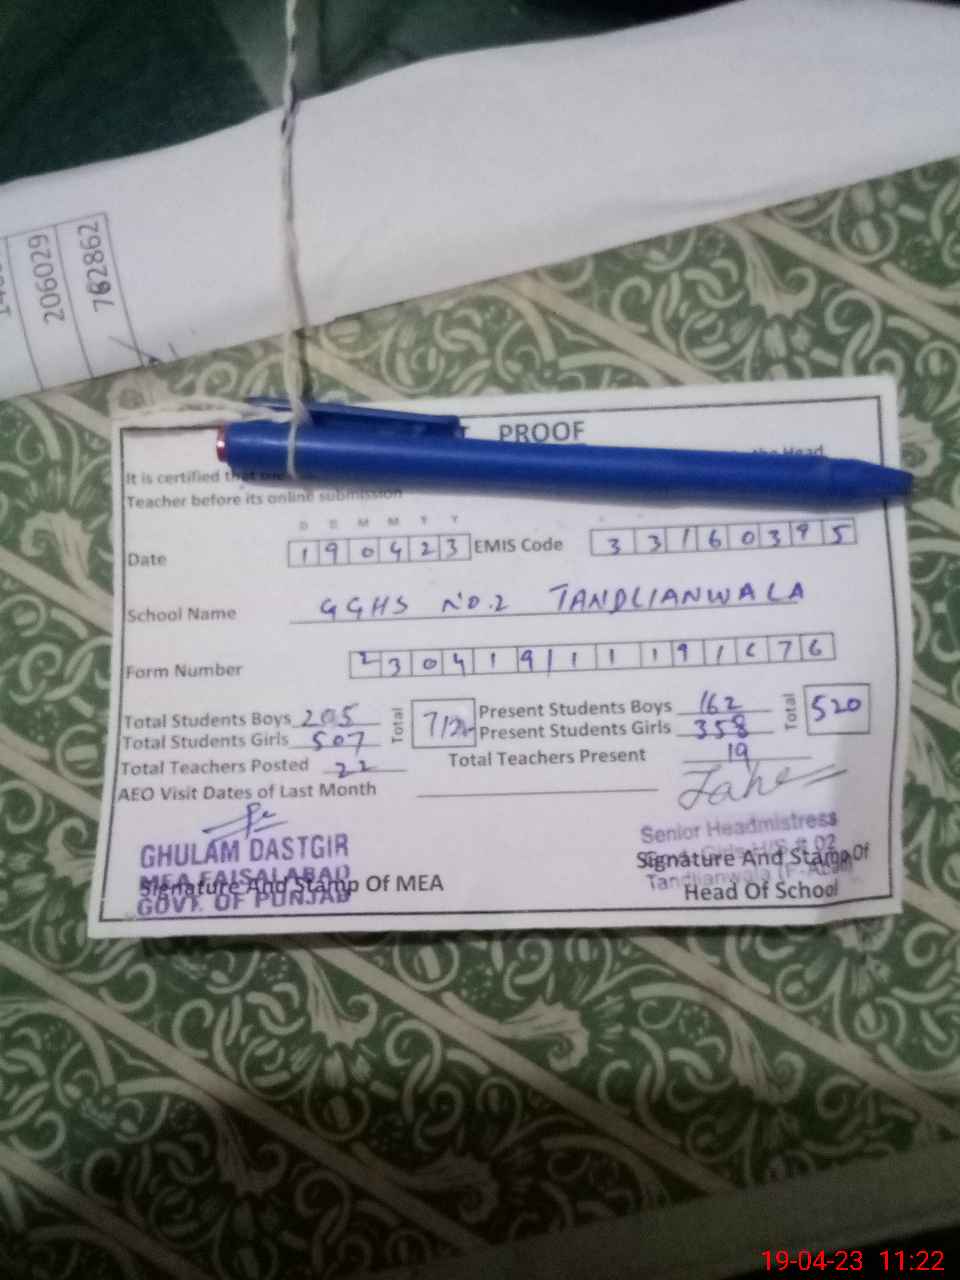 206029
762862
PROOF
It is certified that the Head
Teacher before its online submission
D D M M Y Y
Date 190423 EMIS Code 33160395
School Name GGHS NO.2 TANDLIANWALA
Form Number
Total Students Boys 205 Total 712 Present Students Boys 162 Total 520
Total Students Girls 507 Present Students Girls 358
Total Teachers Posted 22 Total Teachers Present 19
AEO Visit Dates of Last Month
GHULAM DASTGIR
MEA FAISALABAD
GOVT. OF PUNJAB
Signature And Stamp Of MEA
Senior Headmistress
Govt. Girls H/S # 02
Tandlianwala (F-Abad)
Signature And Stamp Of
Head Of School
19-04-23 11:22